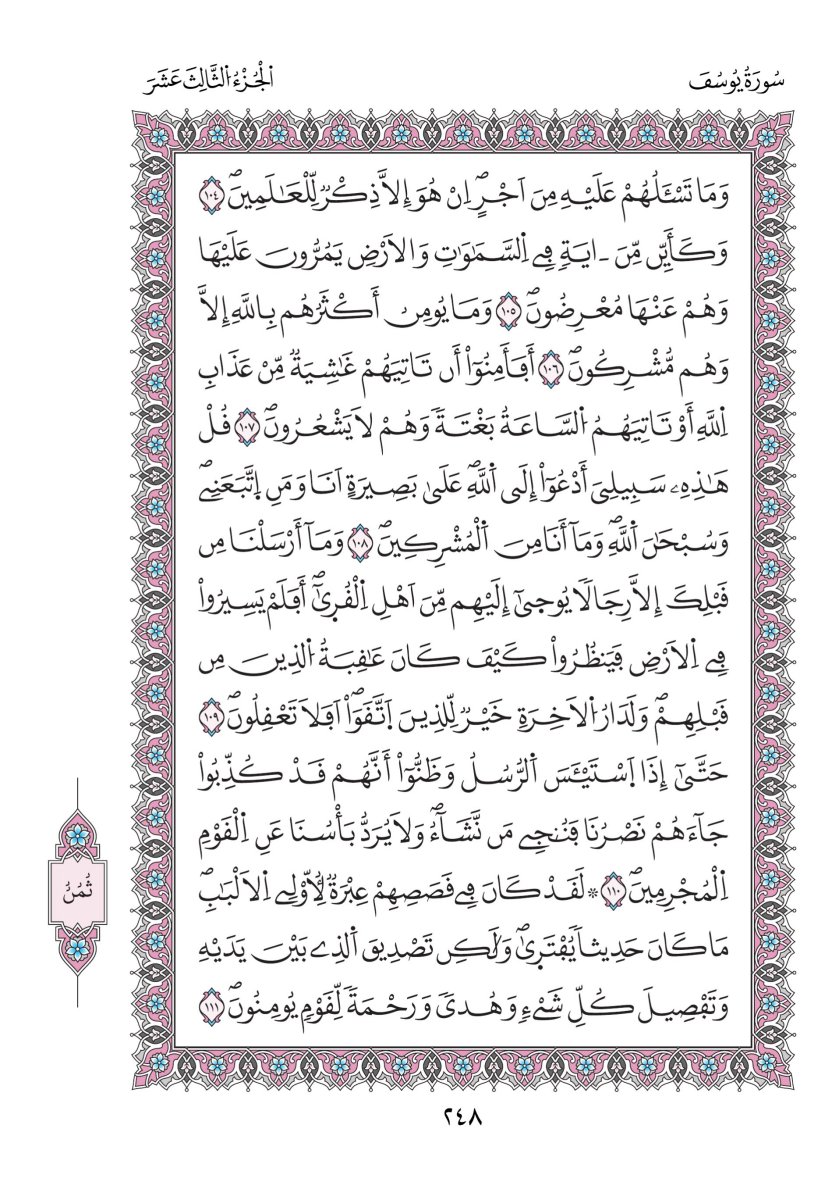 سُورَةُ يُوسُفَ
اَ۬لْجُزْءُ اَ۬لثَّالِثَ عَشَرَ
وَمَا تَسْـَٔلُهُمْ عَلَيْهِ مِنَ اَجْرٍۖ اِنْ هُوَ إِلَّا ذِكْرٞ لِّلْعَٰلَمِينَۖ ١٠٤
وَكَأَيِّن مِّنَ ـ ايَةٖ فِے اِ۬لسَّمَٰوَٰتِ وَالَارْضِ يَمُرُّونَ عَلَيْهَا
وَهُمْ عَنْهَا مُعْرِضُونَۖ ١٠٥ وَمَا يُومِنُ أَكْثَرُهُم بِاللَّهِ إِلَّا
وَهُم مُّشْرِكُونَۖ ١٠٦ أَفَأَمِنُوٓاْ أَن تَاتِيَهُمْ غَٰشِيَةٞ مِّنْ عَذَابِ
اِ۬للَّهِ أَوْ تَاتِيَهُمُ اُ۬لسَّاعَةُ بَغْتَةٗ وَهُمْ لَا يَشْعُرُونَۖ ١٠٧ قُلْ
هَٰذِهِۦ سَبِيلِيَ أَدْعُوٓاْ إِلَى اَ۬للَّهِۖ عَلَىٰ بَصِيرَةٍ اَنَا وَمَنِ اِ۪تَّبَعَنِےۖ
وَسُبْحَٰنَ اَ۬للَّهِۖ وَمَآ أَنَا مِنَ اَ۬لْمُشْرِكِينَۖ ١٠٨ وَمَآ أَرْسَلْنَا مِن
قَبْلِكَ إِلَّا رِجَالٗا يُوحَىٰٓ إِلَيْهِم مِّنَ اَهْلِ اِ۬لْقُرَىٰٓۖ أَفَلَمْ يَسِيرُواْ
فِے اِ۬لَارْضِ فَيَنظُرُواْ كَيْفَ كَانَ عَٰقِبَةُ اُ۬لذِينَ مِن
قَبْلِهِمْۖ وَلَدَارُ اُ۬لَاخِرَةِ خَيْرٞ لِّلذِينَ اَ۪تَّقَوَاْۖ اَفَلَا تَعْقِلُونَۖ ١٠٩
حَتَّىٰٓ إِذَا اَ۪سْتَيْـَٔسَ اَ۬لرُّسُلُ وَظَنُّوٓاْ أَنَّهُمْ قَدْ كُذِّبُواْ
جَآءَهُمْ نَصْرُنَا فَنُنجِے مَن نَّشَآءُۖ وَلَا يُرَدُّ بَأْسُنَا عَنِ اِ۬لْقَوْمِ
اِ۬لْمُجْرِمِينَۖ ١١٠ * لَقَدْ كَانَ فِے قَصَصِهِمْ عِبْرَةٞ لِّأُوْلِے اِ۬لَالْبَٰبِۖ
مَا كَانَ حَدِيثاٗ يُفْتَرَىٰۖ وَلَٰكِن تَصْدِيقَ اَ۬لذِے بَيْنَ يَدَيْهِ
وَتَفْصِيلَ كُلِّ شَےْءٖ وَهُدىٗ وَرَحْمَةٗ لِّقَوْمٖ يُومِنُونَۖ ١١١
ثُمُنُ
٢٤٨